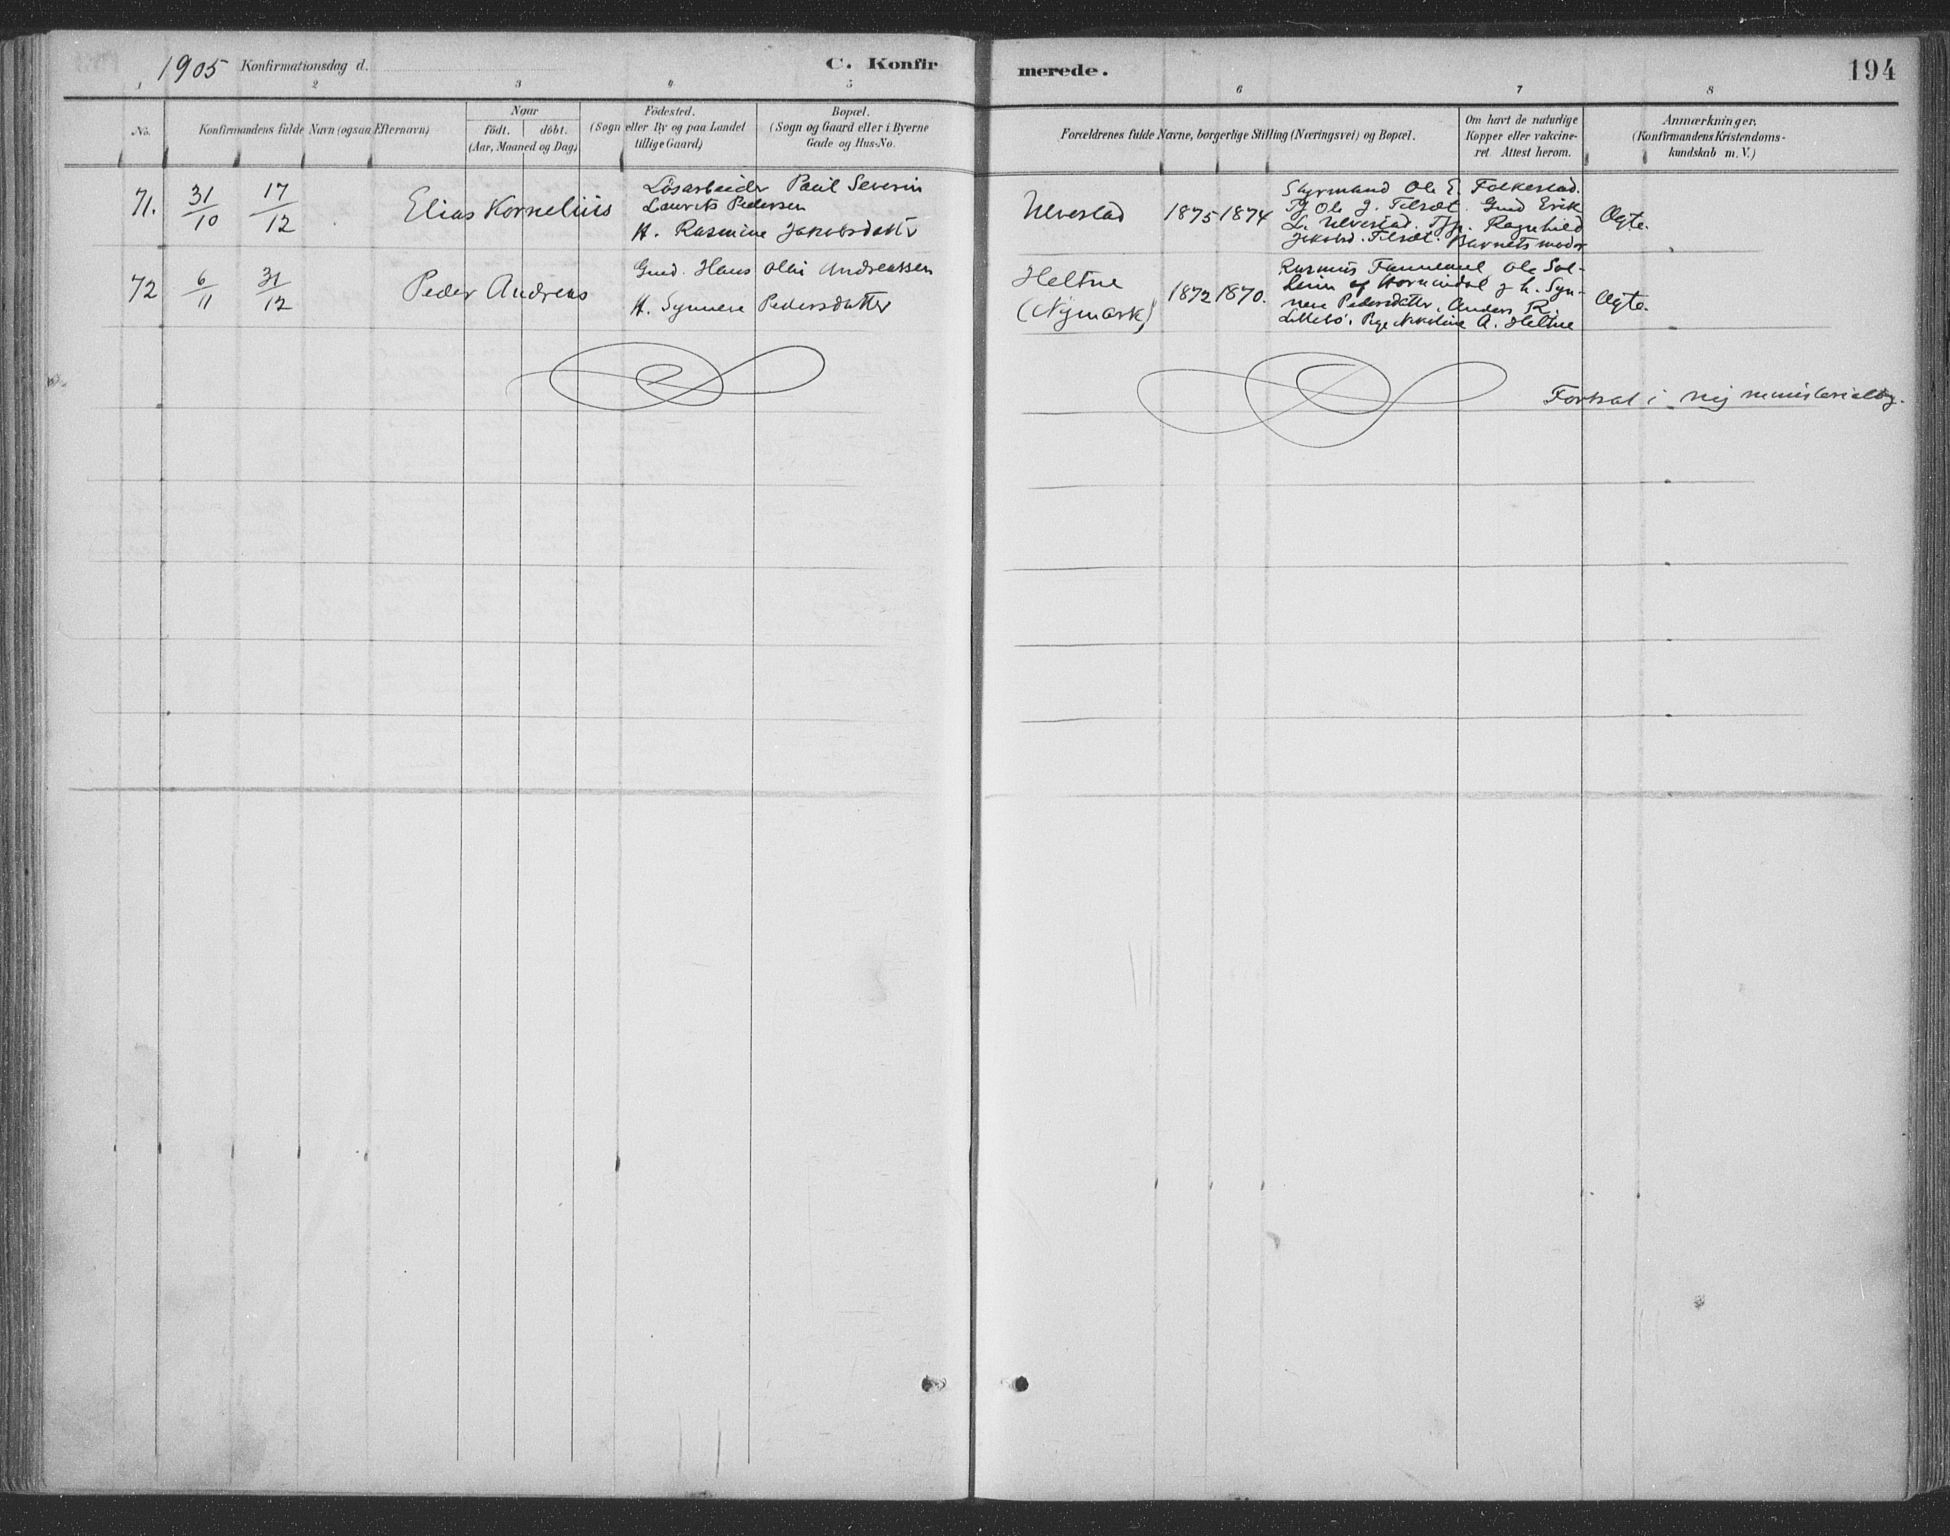 1905 Konfirmationsdag d. C. Konfirmerede. 194
1 2 3 4 5 6 7 8
No.
Konfirmandens fulde Navn (ogsaa Efternavn)
Naar
födt. döbt.
(Aar, Maaned og Dag)
Födested.
(Sogn eller By og paa Landet
tillige Gaard)
Bopæl.
(Sogn og Gaard eller i Byerne
Gade og Hus-No.
Forældrenes fulde Navne, borgerlige Stilling (Næringsvei) og Bopæl.
Om havt de naturlige
Kopper eller vakcine-
ret. Attest herom.
Anmærkninger.
(Konfirmandens Kristendoms-
kundskab m. V.)
71. 31/10 17/12 Elias Kornelius
Lösarbeider Paul Severin
Laurits Pedersen
H. Rasmine Jakobsdatter
Ulvestad 1875 1874
Styrmand Ole E. Folkestad.
Ole J. Filsæt. Gmd Erik
L. Ulvestad. Ragnhild
Jakobsd. Filsæt. Barnets moder
Ægte.
72 6/11 31/12 Peder Andreas
Gmd. Hans Olai Andreassen
H. Synnere Pedersdatter
Heltne
(Nymark)
1872 1870.
Rasmus Ole Sol-
af Hornindal g. h. Syn-
nere Pedersdatter, Anders R.
Littlebö. Pige Nikoline A. Heltne
Ægte.
Fortsat i ny ministerialbog.